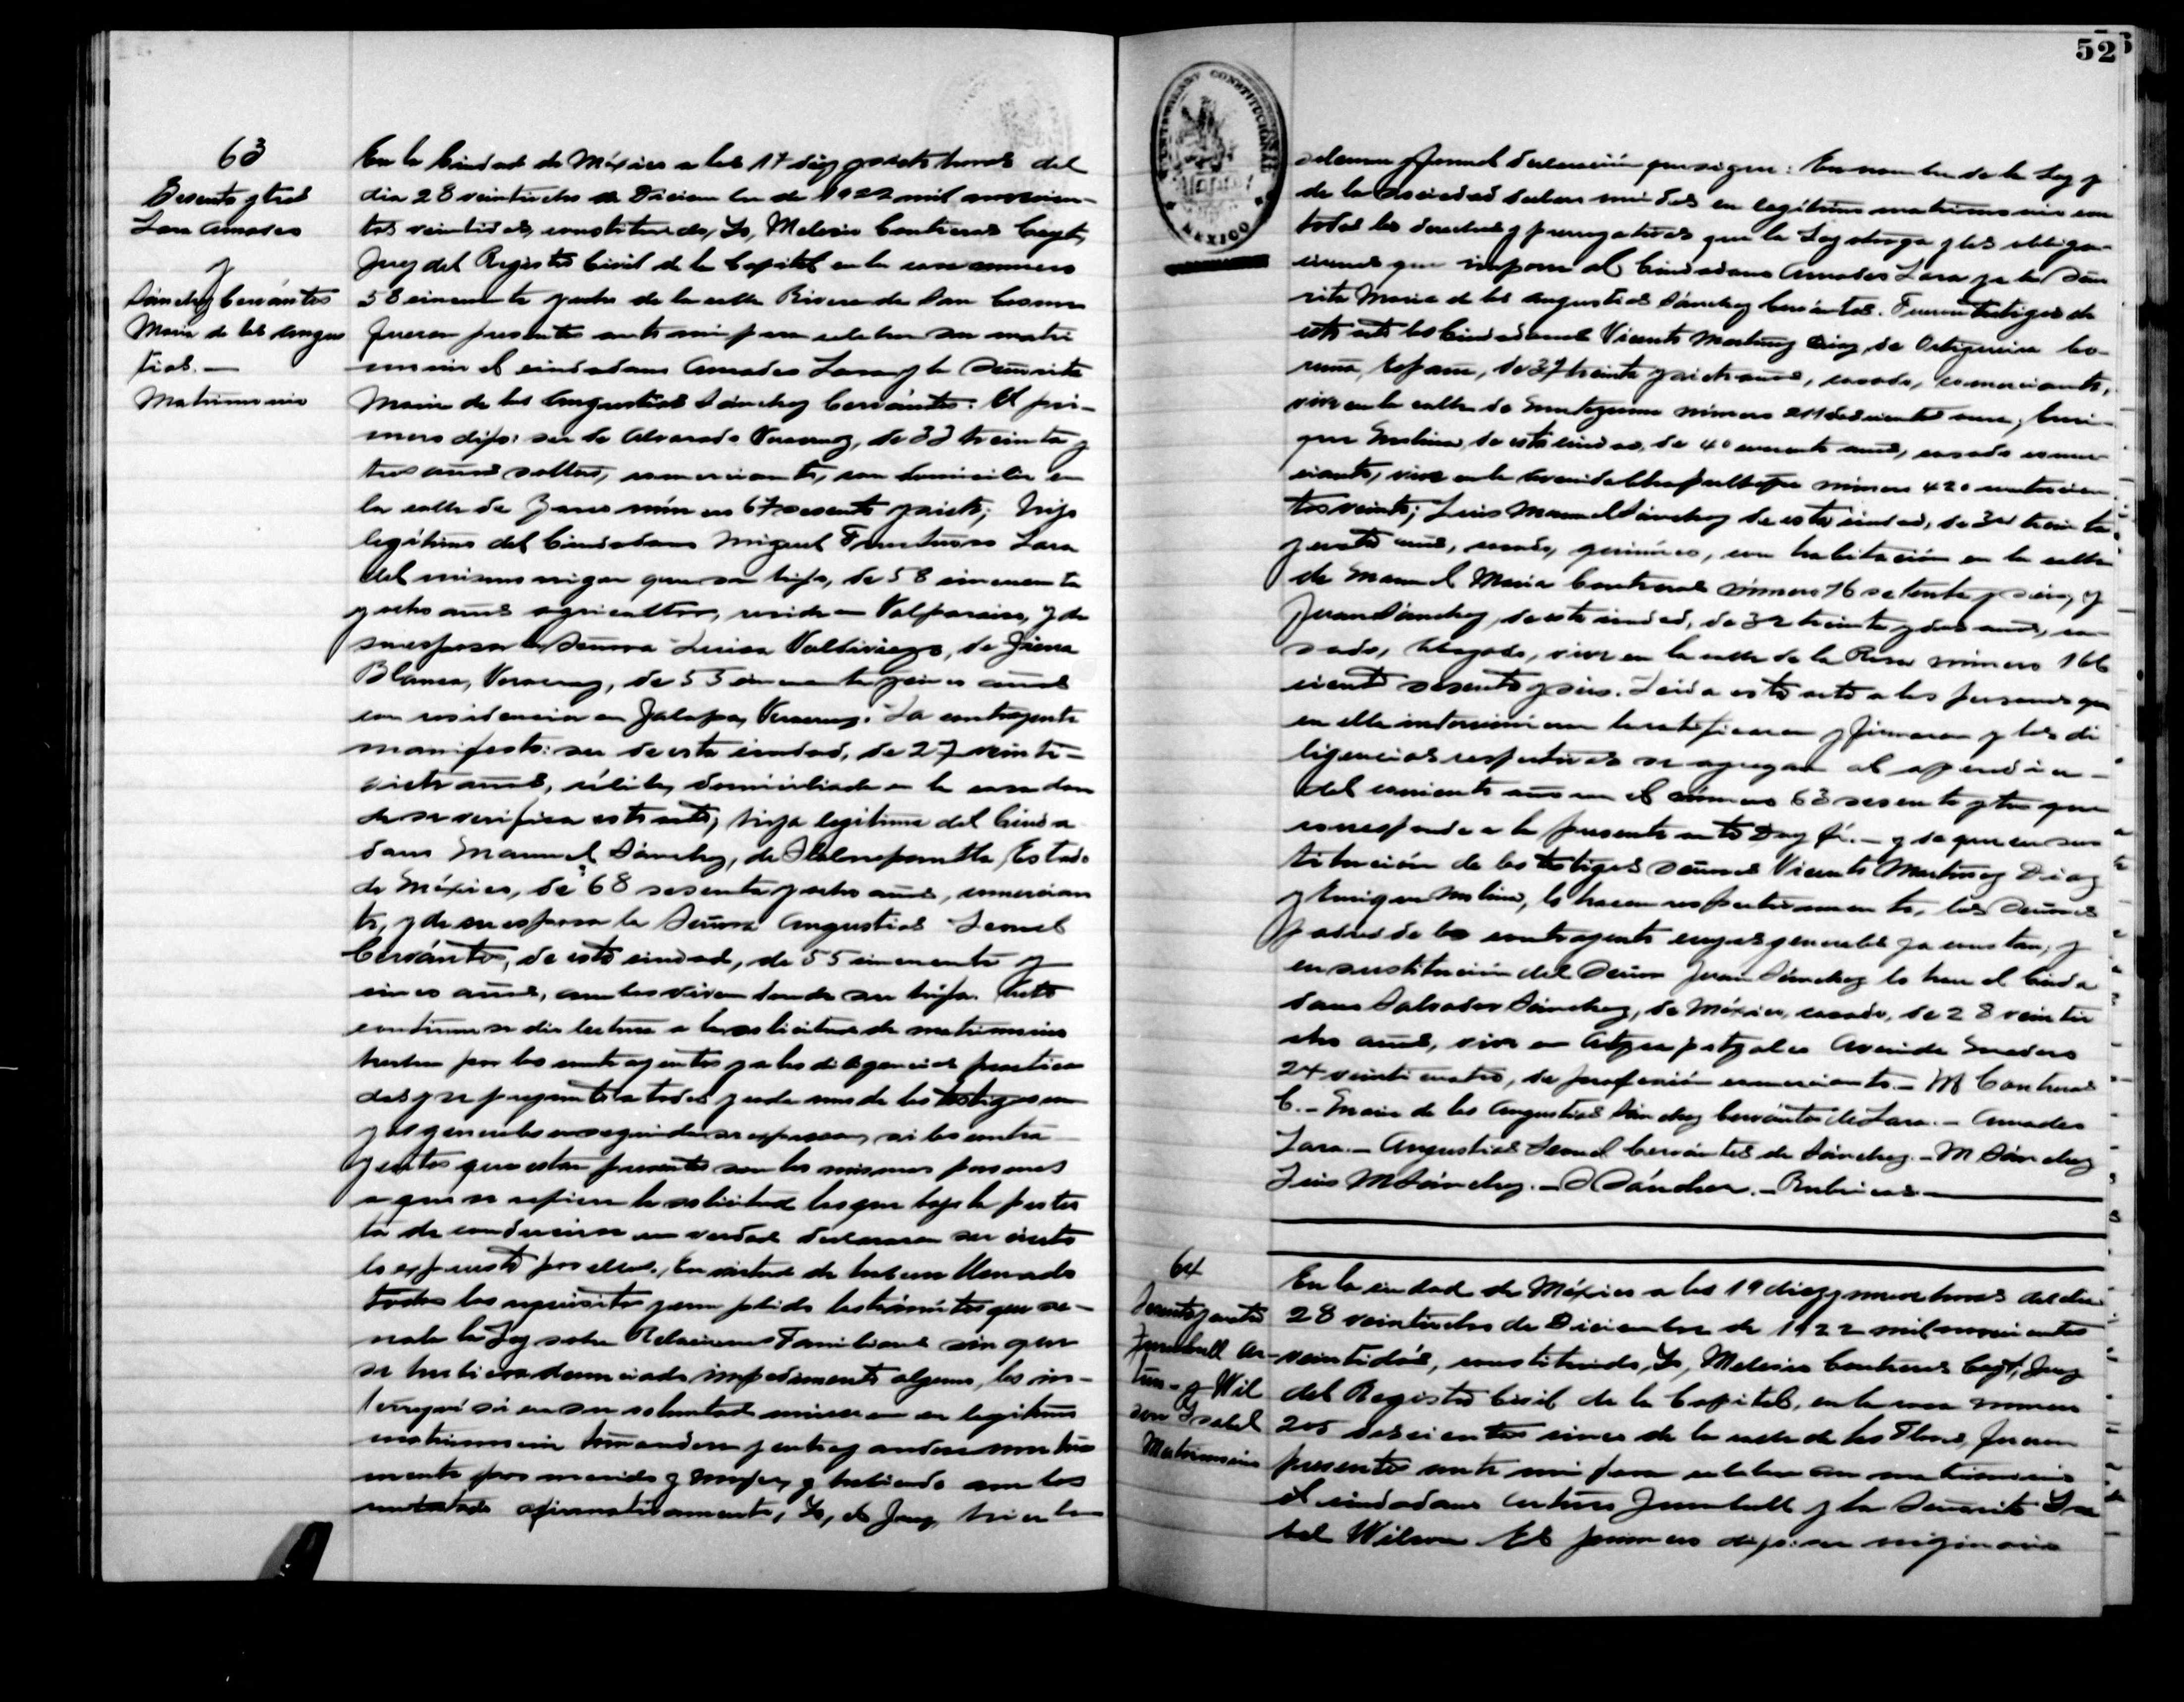 63
Sesenta y tres
Lara Amadeo
y
Sánchez Cervántes
María de las Angus
tias.—
Matrimonio
En la Ciudad de México a las 17 diez y siete horas del
dia 28 veintiocho de Diciembre de 1922 mil novecien-
tos veintidos, constituido, Yo, Melesio Contreras Cayt,
Juez del Registro Civil de la Capital en la casa numero
58 cincuenta y ocho de la calle Rivera de San Cosme
fueron presentes ante mi para celebrar su matri
monio el ciudadano Amadeo Lara y la Señorita
María de las Angustias Sánchez Cervántes: El pri-
mero dijo: ser de Alvarado Veracruz, de 33 treinta y
tres años soltero, comerciante, con domicilio en
la calle de número 67 sesenta y siete; hijo
legítimo del Ciudadano Miguel Fructuoso Lara
del mismo origen que su hijo, de 58 cincuenta
y ocho años agricultor, reside en Valparaiso, y de
su esposa la Señora Luisa Valdiviezo, de Tierra
Blanca, Veracruz, de 55 cincuenta y cinco años
con residencia en Jalapa, Veracruz. La contrayente
manifestó: ser de esta ciudad, de 27 veinti-
siete años, célibe, domiciliada en la casa don
de se verifica este acto, hija legítima del Ciuda
dano Manuel Sánchez, de Tlalnepantla, Estado
de México, de 68 sesenta y ocho años, comercian
te, y de su esposa la Señora Angustias Leonel
Cervántes, de esta ciudad, de 55 cincuenta y
cinco años, ambos viven donde su hija. Acto
continuo se dio lectura a la solicitud de matrimonio
hecha por los contrayentes y a las diligencias practica
das y se preguntó a todos y cada uno de los testigos cu
yas generales en seguida se expresan, si los contra
yentes que estan presentes son las mismas personas
a que se refiere la solicitud los que bajo la protes
ta de conducirse con verdad declararon ser cierto
lo expuesto por ellos. En virtud de haberse llenado
todos los requisitos y cumplido los trámites que se-
ñala la Ley sobre Relaciones Familiares sin que
se hubiera denunciado impedimento alguno, los in-
terrogué si era su voluntad unirse en legítimo
matrimonio tomándose y entregándose mutua
mente por marido y mujer, y habiendo ambos
contestado afirmativamente, Yo, el Juez, hice la
52
MEXICO
solemne y formal declaración que sigue: En nombre de la Ley y
de la Sociedad declaro unidos en legítimo matrimonio con
todos los derechos y prerrogativas que la Ley otorga y las obliga-
ciones que impone al Ciudadano Amadeo Lara y a la Seño
rita María de las Angustias Sánchez Cervántes. Fueron testigos de
este acto los Ciudadanos Vicente Martínez Díaz, de Ortigueira Co-
ruña, España, de 37 treinta y siete años, casado, comerciante,
vive en la calle de Moctezuma número 211 doscientos once; Enri-
que Molina, de esta ciudad, de 40 cuarenta años, casado comer
ciante, vive en la avenida Chapultepec número 420 cuatrocien
tos veinte; Luis Manuel Sánchez de esta ciudad, de 34 treinta
y cuatro años, casado, químico, con habitación en la calle
de Manuel María Contreras número 76 setenta y seis, y
Juan Sánchez, de esta ciudad, de 32 treinta y dos años, ca-
sado, Abogado, vive en la calle de la Rosa número 166
ciento sesenta y seis. Leída esta acta a las personas que
en ella intervinieron la ratificaron y firmaron y las di
ligencias respectivas se agregan al apéndice —
del corriente año con el número 63 sesenta y tres que
corresponde a la presente acta Doy fé.— y se que en sus
titución de los testigos señores Vicente Martínez Díaz
y Enrique Molina, lo hacen respectivamente, los Señores
padres de la contrayente cuyas generales ya constan, y
en sustitución del Señor Juan Sánchez lo hace el Ciuda
dano Salvador Sánchez, de México, casado, de 28 veintio
cho años, vive en Atzcapotzalco Avenida Madero
24 veinticuatro, de profesión comerciante.— M Contreras
C.— María de las Angustias Sánchez Cervántes de Lara.— Amadeo
Lara.— Angustias Leonel Cervántes de Sánchez.— M Sánchez
Luis M Sánchez.— S Sánchez.— Rubricas—
64
Sesenta y cuatro
Turnbull Ar-
turo - y Wil
son Ysabel
Matrimonio
En la ciudad de México a las 19 diez y nueve horas del dia
28 veintiocho de Diciembre de 1922 mil novecientos
veintidós, constituido, Yo, Melesio Contreras Cayt, Juez
del Registro Civil de la Capital, en la casa numero
205 doscientos cinco de la calle de las Flores, fueron
presentes ante mi para celebrar su matrimonio
el ciudadano Arturo Turnbull y la Señorita Ysa
bel Wilson El primero dijo: ser originario